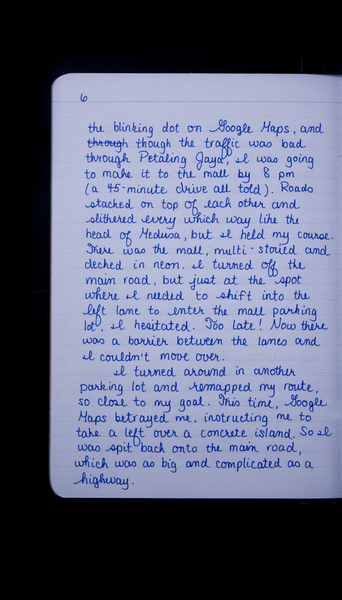 6
the blinking dot on Google Maps, and
through though the traffic was bad
through Petaling Jaya, I was going
to make it to the mall by 8 pm
(a 45-minute drive all told). Roads
stacked on top of each other and
slithered every which way like the
head of Medusa, but I held my course.
There was the mall, multi-storied and
decked in neon. I turned off the
main road, but just at the spot
where I needed to shift into the
left lane to enter the mall parking
lot, I hesitated. Too late! Now there
was a barrier between the lanes and
I couldn't move over.
I turned around in another
parking lot and remapped my route,
so close to my goal. This time, Google
Maps betrayed me, instructing me to
take a left over a concrete island. So I
was spit back onto the main road,
which was as big and complicated as a
highway.